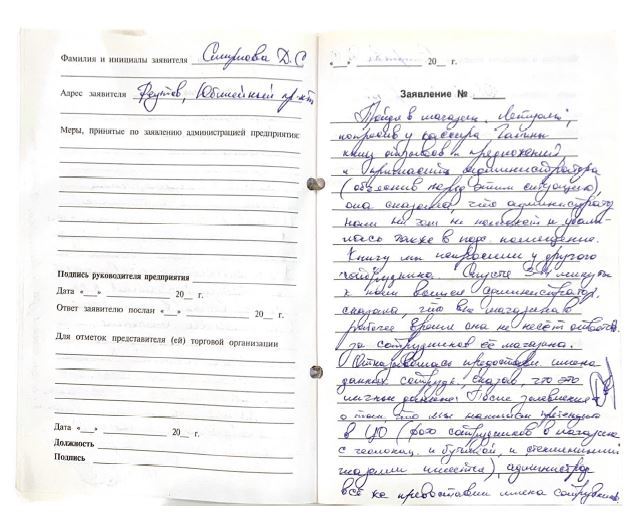 Фамилия и инициалы заявителя Смирнова Д.С
Адрес заявителя Реутов, Юбилейный пр-кт
Меры, принятые по заявлению администрацией предприятия:
Подпись руководителя предприятия
Дата «___» ____________ 20__ г.
Ответ заявителю послан «___» ____________ 20__ г.
Для отметок представителя (ей) торговой организации
Дата «___» ____________ 20__ г.
Должность
Подпись
«___» ____________ 20__ г.
Заявление № ______
Придя в магазин Летуаль,
попросив у кассира Галины
книгу отзывов и предложений
и пригласить администратора
(объяснив перед этим ситуацию),
она сказала, что администратор
нам ни чем не поможет и удали-
лась также в под. помещение.
Книгу мы попросили у другого
сотрудника. Спустя 3-4 минуты
к нам вышел администратор,
сказала, что вне магазина в
рабочее время она не несёт ответ
за сотрудников её магазина.
Отказывалась предоставить имена
данных сотруд., сказав, что это
личные данные. После заявления
о том, что мы напишем претензию
в ЦО (фото сотрудников в магазине
с , и бутылкой, и стеклянными
глазами имеется), администратор
всё же предоставил имена сотрудников